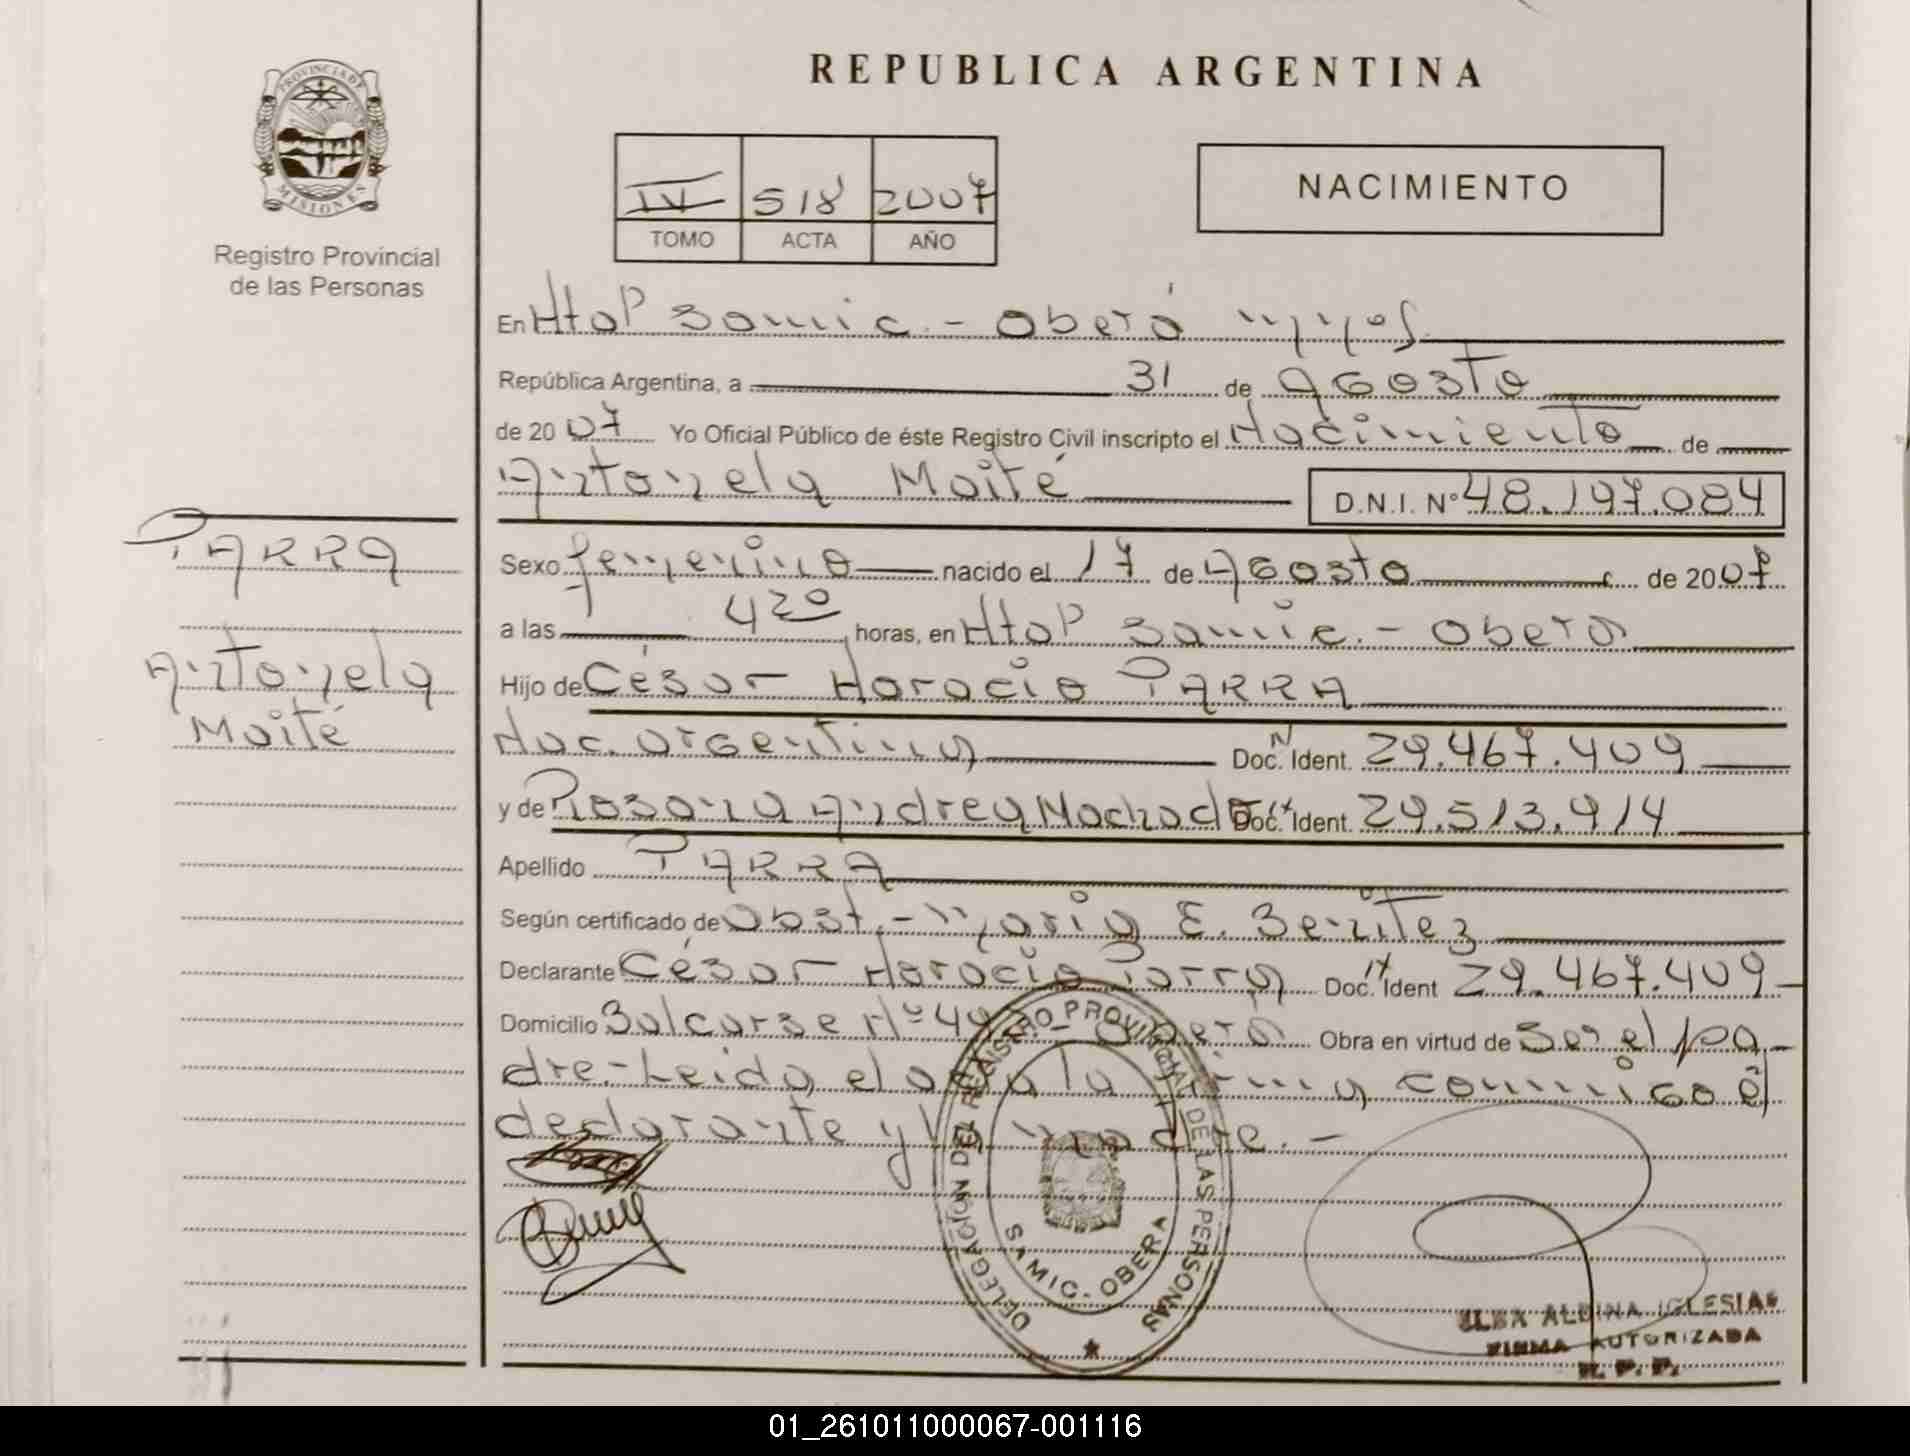 PROVINCIA DE
MISIONES
Registro Provincial
de las Personas
REPUBLICA ARGENTINA
IV 518 2007
TOMO ACTA AÑO
NACIMIENTO
En Htal Samic.- Oberá Mnes
República Argentina, a 31 de Agosto
de 2007 Yo Oficial Público de éste Registro Civil inscripto el Nacimiento de
Antonela Maité D.N.I. Nº 48.197.084
PARRA
Antonela
Maité
Sexo femenino nacido el 17 de Agosto de 2007
a las 4 20 horas, en Htal Samic.- Oberá
Hijo de César Horacio PARRA
Nac. argentina Doc. Ident. 29.467.409
y de Rosana Andrea Machado Doc. Ident. 29.513.914
Apellido PARRA
Según certificado de Obst.- María E. Benítez
Declarante César Horacio Parra Doc. Ident 29.467.409
Domicilio Balcarse Nº Oberá Obra en virtud de Ser el pa-
dre.- Leida el acta la firma conmigo el
declarante y la madre.-
DELEGACION DEL REGISTRO PROVINCIAL DE LAS PERSONAS
SAMIC - OBERA
ALBINA IGLESIAS
FIRMA AUTORIZADA
R. P. P.
01_261011000067-001116